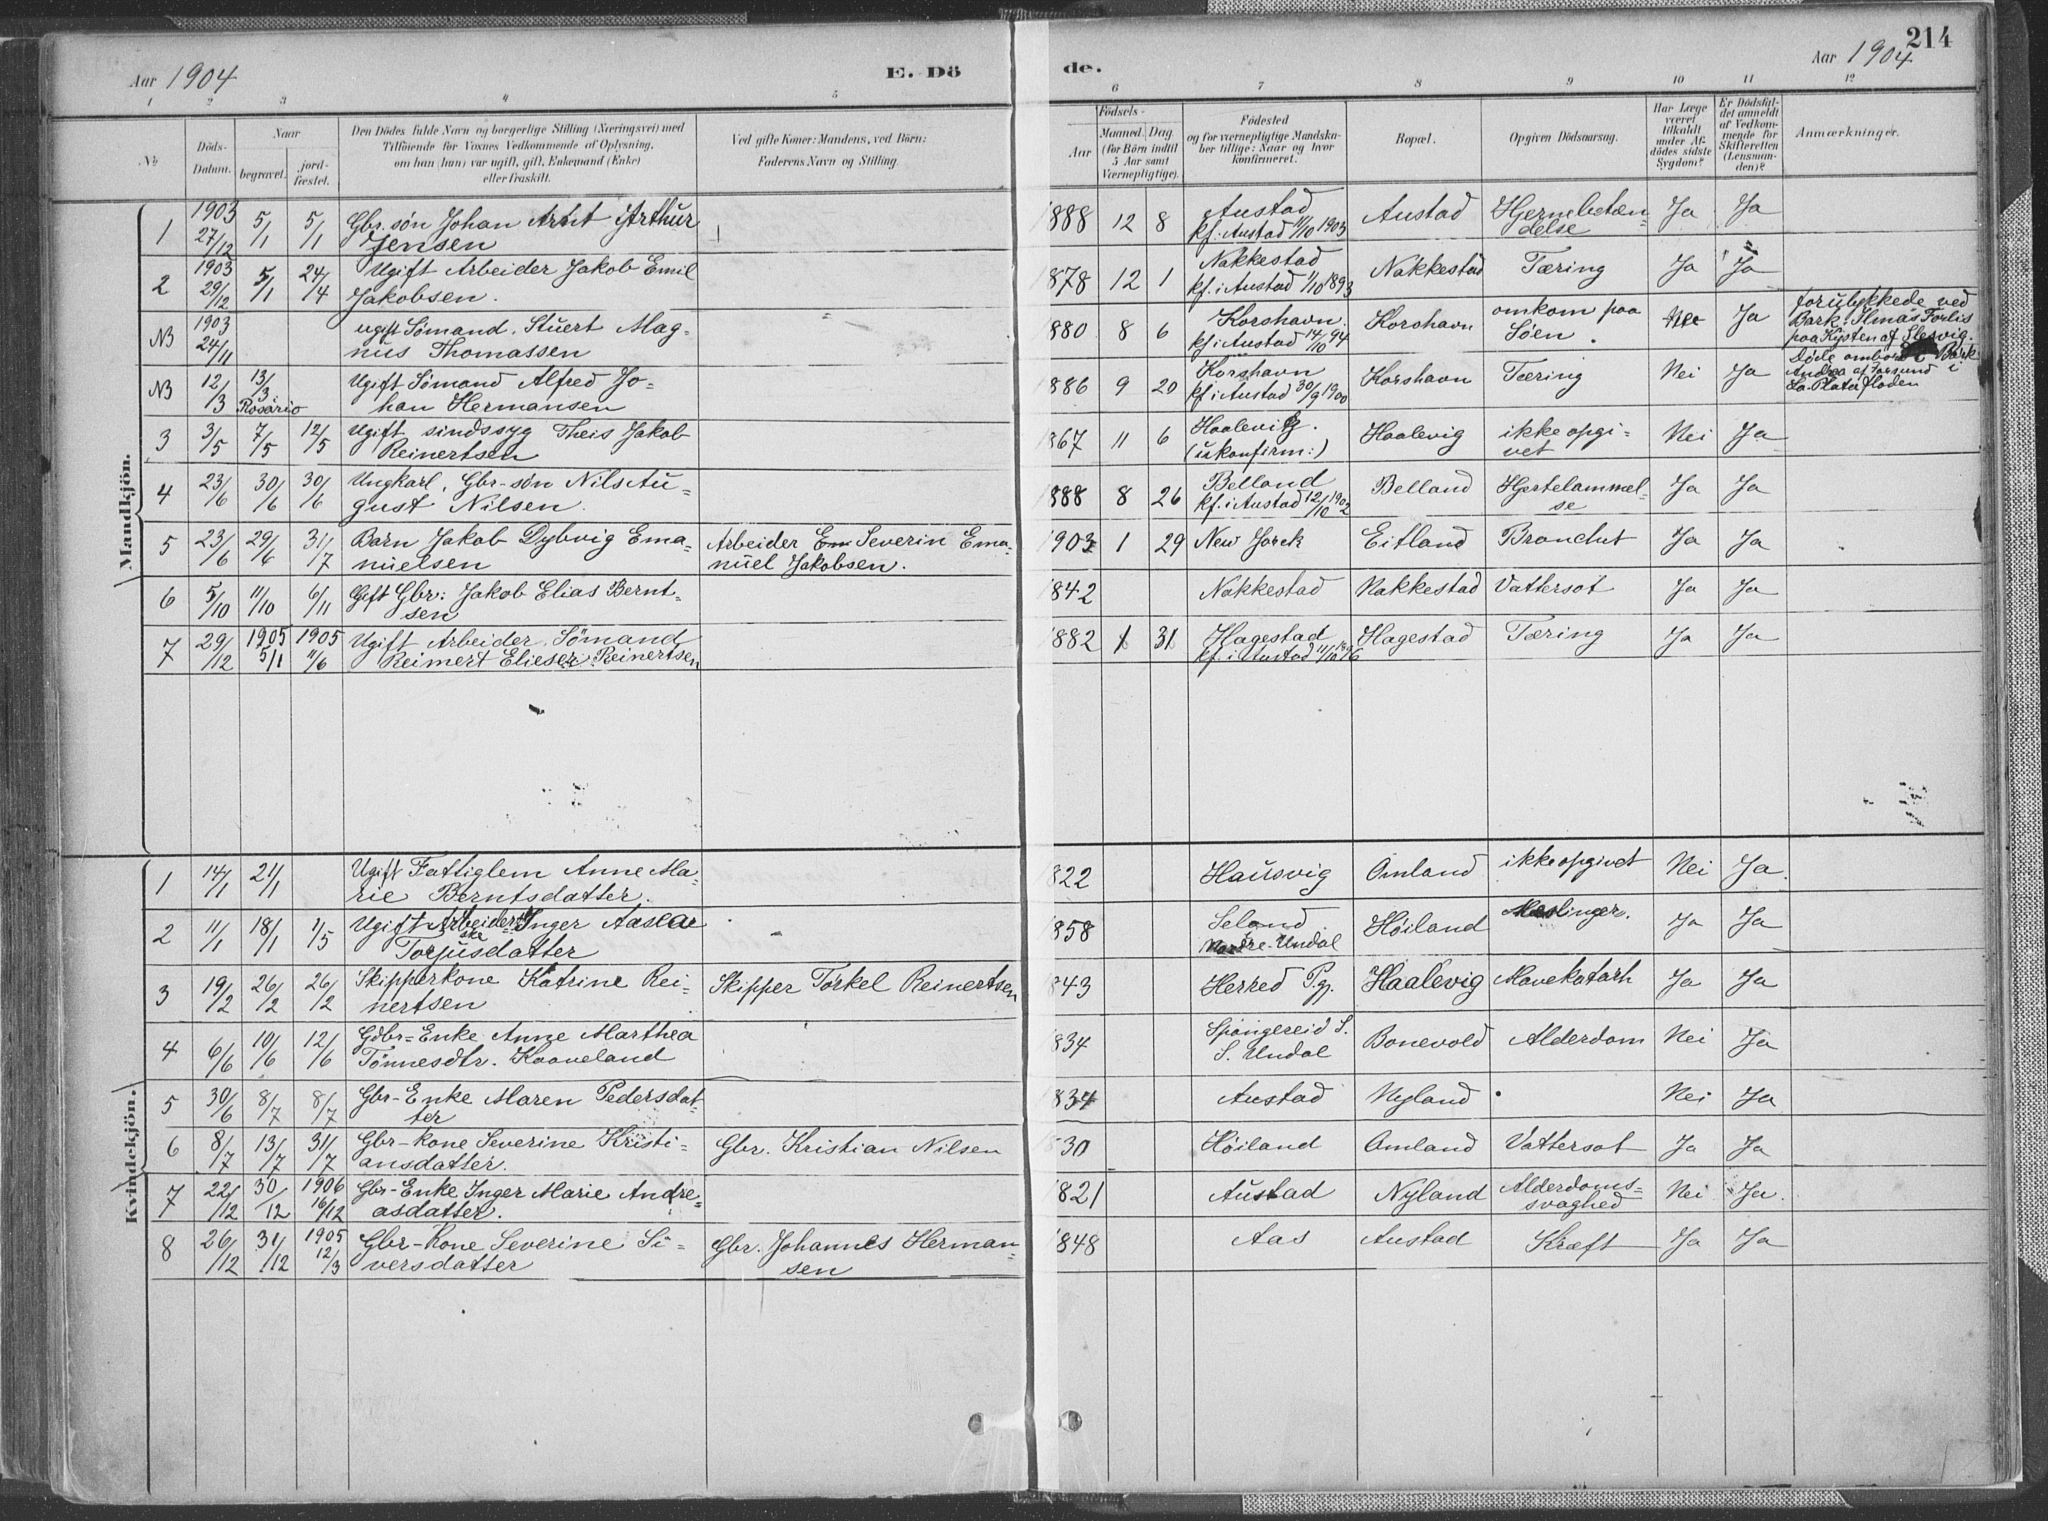 214
Aar 1904
E. Dö
de.
Aar 1904
1 2 3 4 5 6 7 8 9 10 11 12
№
Döds-Datum.
Naar
begravet.
jord-fæstet.
Den Dödes fulde Navn og borgerlige Stilling (Næringsvei) med
Tilföiende for Voxnes Vedkommende af Oplysning,
om han (hun) var ugift, gift, Enkemand (Enke)
eller fraskilt.
Ved gifte Koner: Mandens, ved Börn:
Faderens Navn og Stilling.
Födsels-
Aar
Maaned. Dag.
(for Börn indtil
5 Aar samt
Værnepligtige).
Födested
og for værnepligtige Mandska-
ber tillige: Naar og hvor
konfirmeret.
Bopæl.
Opgiven Dödsaarsag.
Har Læge
været
tilkaldt
under Af-
dödes sidste
Sygdom?
Er Dödsfal-
det anmeldt
af Vedkom-
mende for
Skifteretten
(Lensman-
den)?
Anmærkninger.
Mandkjön.
1 1903 27/12 5/1 5/1 Gbr. søn Johan Arnt Arthur
Jensen
1888 12 8 Austad
kf. i Austad 11/10 1903 Austad Hjernebetæn-
delse Ja Ja
2 1903 29/12 5/1 24/4 Ugift Arbeider Jakob Emil
Jakobsen.
1878 12 1 Nakkestad
kf. i Austad 1/10 1893 Nakkestad Tæring Ja Ja
NB 1903 24/11 ugift Sömand. Stuert Mag-
nus Thomassen
880 8 6 Korshavn.
kf i Austad 14/10 94 Korshavn omkom paa
Söen. Ja forulykkede ved
Bark. Ilmas Forlis
paa Kysten af Slesvig.
NB 12/3 13/3 Rosario Ugift Sömand Alfred Jo-
han Hermansen
886 9 20 Korshavn
kf. i Austad 30/9 1900 Korshavn Tæring Nei Ja Döde ombord i Bark
Andrea af Farsund i
La Plata floden
3 3/5 7/5 12/5 Ugift sindssyg Theis Jakob
Reinertsen
867 11 6 Haalevig.
(ukonfirm:) Haalevig ikke opgi-
vet Nei Ja
4 23/6 30/6 30/6 Ungkarl. Gbr-søn Nils Au-
gust Nilsen.
888 8 26 Belland
kf. i Austad 12/10 1902 Belland Hjertelammel-
se Ja Ja
5 23/6 29/6 31/7 Barn Jakob Dybvig Ema-
nuelsen
Arbeider Em Severin Ema-
nuel Jakobsen.
1903 1 29 New Jorck Eitland Bronchit Ja Ja
6 5/10 11/10 6/11 Gift Gbr: Jakob Elias Bernt-
sen
1842 Nakkestad Nakkestad Vattersot Ja Ja
7 29/12 1905 5/1 1905 11/6 Ugift Arbeider. Sömand
Reinert Elieser Reinertsen
1882 1 31 Hagestad
kf. i Austad 11/10 Hagestad Tæring Ja Ja
Kvindekjön.
1 14/1 21/1 Ugift Fattiglem Anne Ma-
rie Berntsdatter.
822 Hausvig Omland ikke opgivet Nei Ja.
2 11/1 18/1 1/5 Ugift Arbeiderske Inger Aaselae
Torjusdatter
858 Seland
Nordre-Undal Høiland Mæslinger. Ja Ja
3 19/2 26/2 26/2 Skipperkone Katrine Rei-
nertsen
Skipper Torkel Reinertsen
843 Herred Pgj. Haalevig Mavekatarh Ja Ja
4 6/6 10/6 12/6 Gdbr-Enke Anne Marthea
Tönnesdtr. Kaaveland
834 Spangereid S.
S. Undal Bonevold Alderdom Nei Ja
5 30/6 8/7 8/7 Gbr-Enke Maren Pedersdat-
ter
834 Austad Nyland " Nei Ja
6 8/7 13/7 31/7 Gbr-kone Severine Kristi-
ansdatter.
Gbr. Kristian Nilsen
830 Høiland Omland Vattersot Ja Ja
7 22/12 30/12 1906 16/12 Gbr-Enke Inger Marie Andre-
asdatter.
821 Austad Nyland Alderdoms-
svaghed Nei Ja.
8 26/12 31/12 1905 12/3 Gbr-Kone Severine Si-
versdatter
Gbr. Johannes Herman-
sen
1848 Aas Austad Kræft Ja Ja